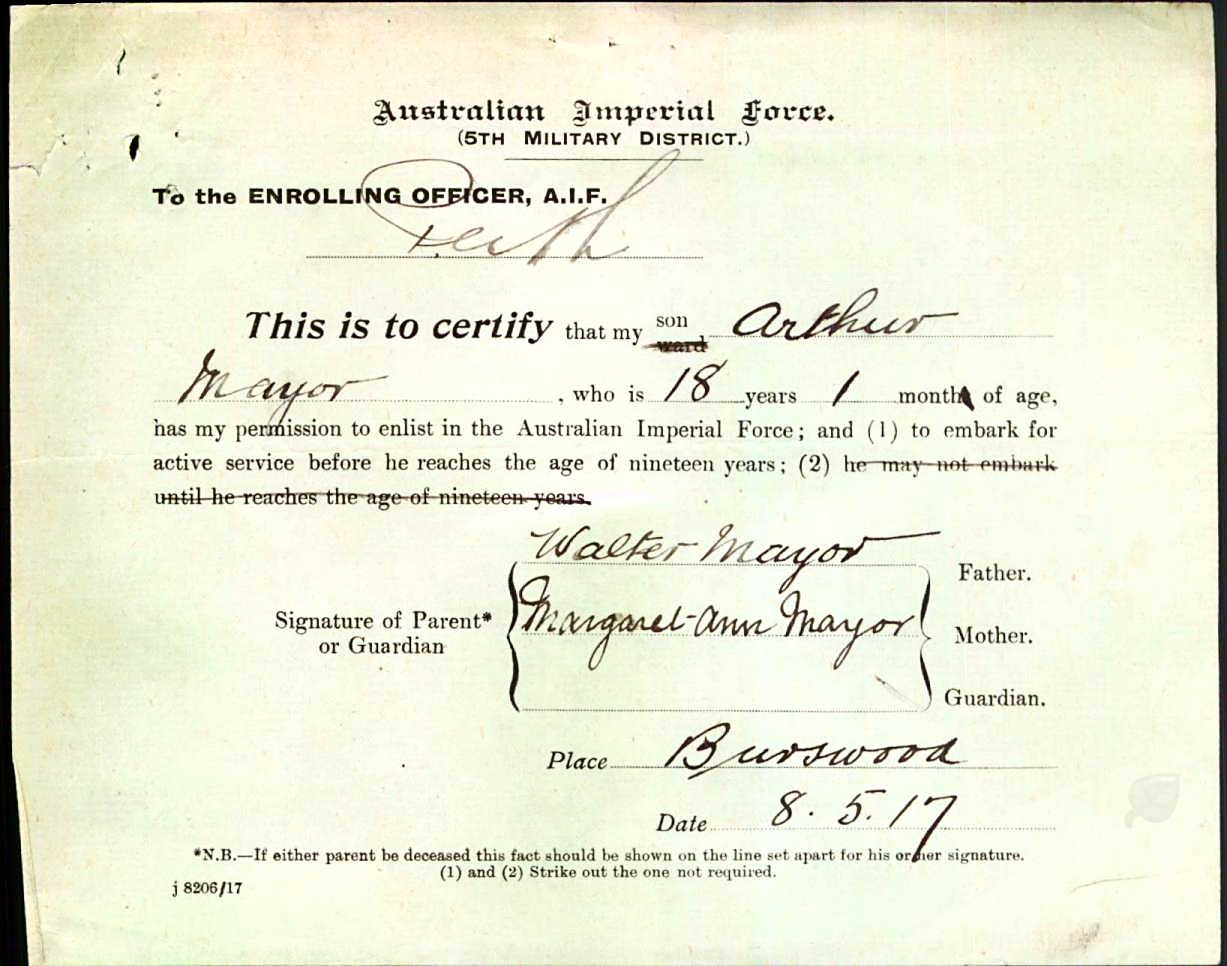 Australian Imperial Force.
(5TH MILITARY DISTRICT.)
To the ENROLLING OFFICER, A.I.F.
Perth
This is to certify that my son ward Arthur
Mayor, who is 18 years 1 month of age,
has my permission to enlist in the Australian Imperial Force; and (1) to embark for
active service before he reaches the age of nineteen years; (2) he may not embark
until he reaches the age of nineteen years.
Walter Mayor Father.
Signature of Parent* or Guardian
Margaret Ann Mayor Mother.
Guardian.
Place Burswood
Date 8.5.17
*N.B.—If either parent be deceased this fact should be shown on the line set apart for his or her signature.
(1) and (2) Strike out the one not required.
j 8206/17